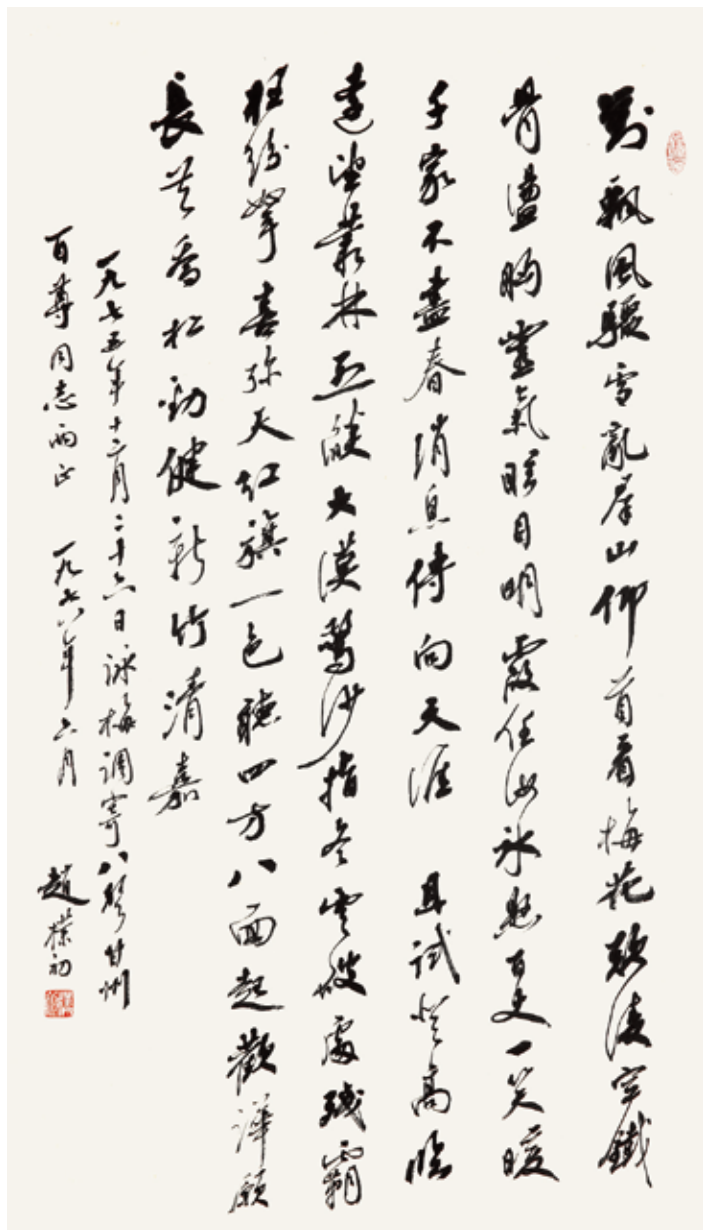 對飄風驟雪亂羣山仰首看梅花凌空鐵
骨盪胸靈氣眩目明霞任汝冰懸百丈一笑暖
千家不盡春消息傳向天涯 且試登高臨
遠望叢林烈燄大漠驚沙指冬雲破處殘霸
枉紛拏喜弥天紅旗一色聽四方八面起歡譁願
長共喬松勁健新竹清嘉
一九七五年十二月二十六日詠梅調寄八聲甘州
百尊同志兩正 一九七八年六月 趙樸初